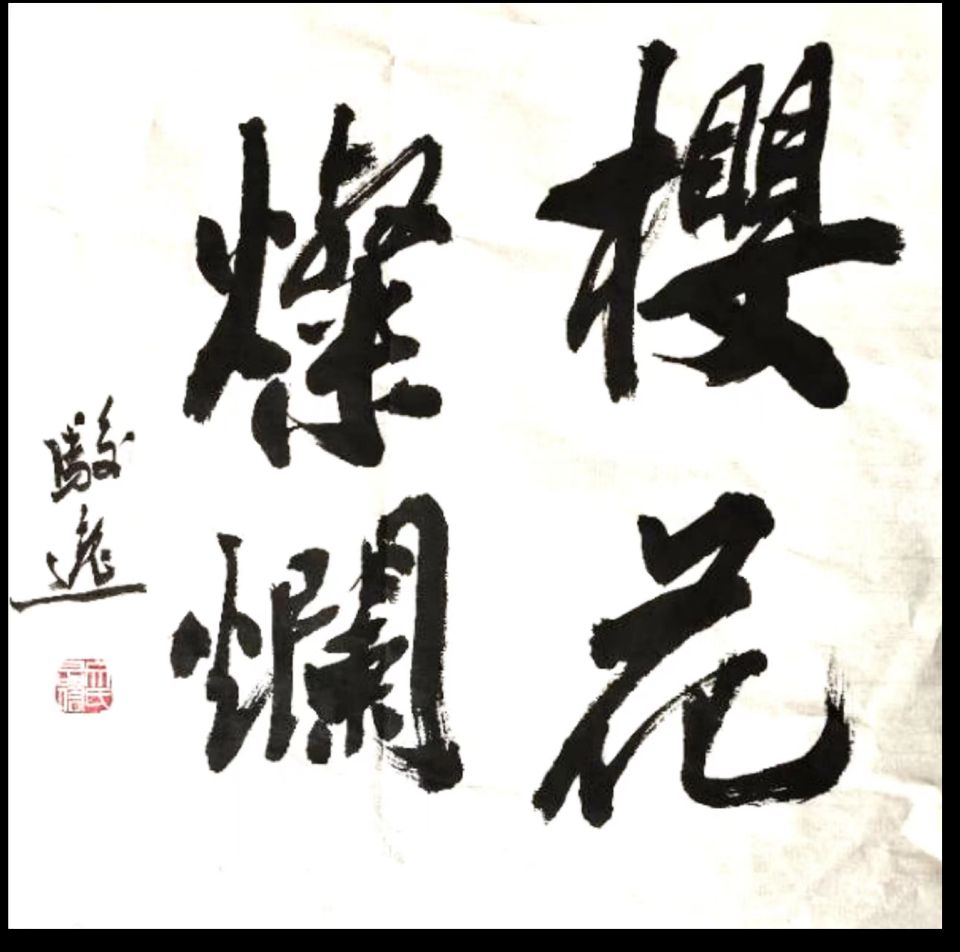 櫻花
燦爛
駿逸